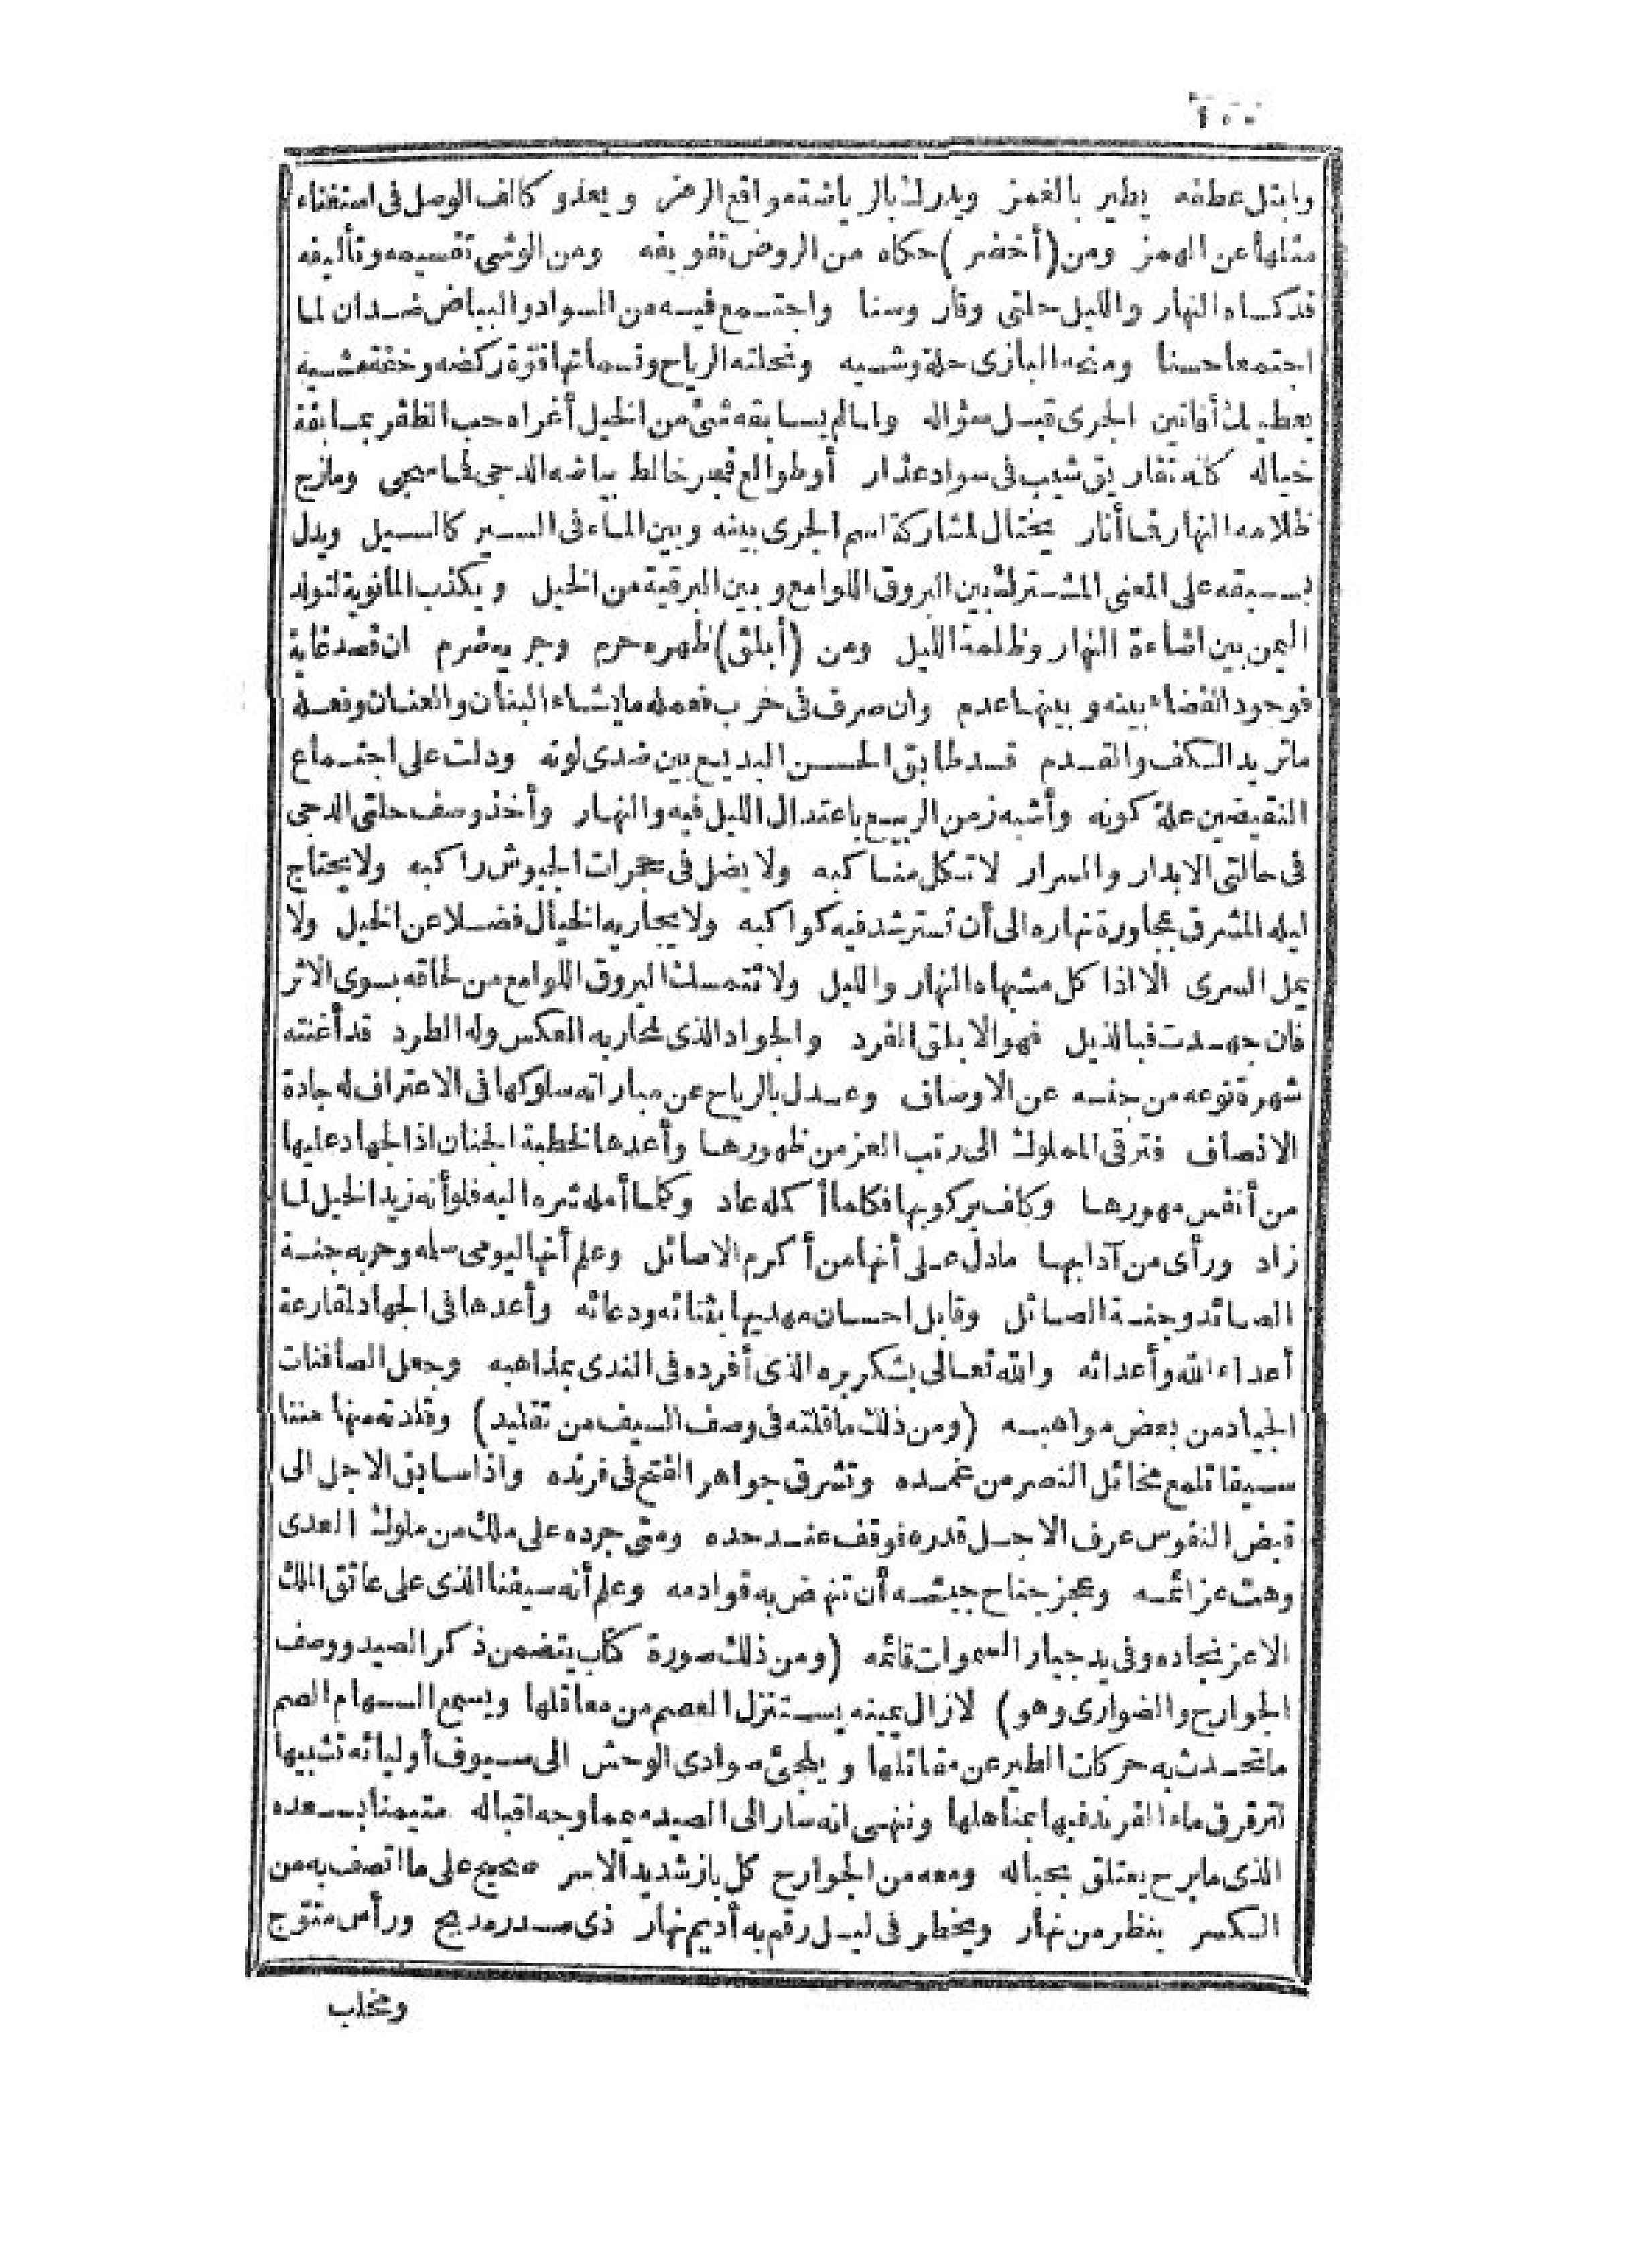 ١٠٠
وابتل عطفه يطير بالغمز ويدرك بالرياضة مواقع الرمز ويعدو كالف الوصل فى استغناء
مثلها عن الهمز ومن (أخضر) حكاه من الروض تفويفه ومن الوشى تقسيمه وتأليفه
قد كساه النهار والليل حلتى وقار وسنا واجتمع فيه من السواد والبياض ضدان لما
اجتمعا حسنا ومنحه البازى حلة وشيه ونحلته الرياح ونسماتها قوّة ركضه وخفة مشيه
يعطيك أفانين الجرى قبل سؤاله ولما لم يسابقه شئ من الخيل أغراه حب الظفر بمسابقة
خياله كانه تفاريق شيب فى سواد عذار أو طوالع فجر خالط بياضه الدجى فما سجى ومازج
ظلامه النهار فما أنار يختال لمشاركة اسم الجرى بينه وبين الماء فى السير كالسيل ويدل
بسبقه على المعنى المشترك بين البروق اللوامع وبين البرقية من الخيل ويكذب المانوية لتولد
اليمن بين اضاءة النهار وظلمة الليل ومن (أبلق) ظهره حرم وجريه ضرم ان قصد غاية
فوجود الفضاء بينه وبينها عدم وان صرف فى حرب فعمله ما يشاء البنان والعنان وفعله
ما تريد الكف والقدم قد طابق الحسن البديع بين ضدى لونه ودلت على اجتماع
النقيضين علة كونه وأشبه زمن الربيع باعتدال الليل فيه والنهار وأخذ وصف حلتى الدجى
فى حالتى الابدار والسرار لا تكل مناكبه ولا يضل فى حجرات الجيوش راكبه ولا يحتاج
ليله المشرق بمجاورة نهاره الى أن تسترشد فيه كواكبه ولا يجاريه الخيال فضلا عن الخيل ولا
يمل السرى الا اذا كل مشبهاه النهار والليل ولا تتمسك البروق اللوامع من لحاقه بسوى الاثر
فان جهدت فبالذيل فهو الابلق الفرد والجواد الذى لمحاربه العكس وله الطرد قد أغنته
شهرة نوعه من جنسه عن الاوصاف وعدل بالرياح عن مباراته سلوكها فى الاعتراف له جادة
الانصاف فترقى المملوك الى رتب العز من ظهورها وأعدها لخطبة الجنان اذ الجهاد عليها
من أنفس مهورها وكلف بركوبها فكلما أكمله عاد وكلما أمله شره اليه فلو أنه زيد الخيل لما
زاد ورأى من آدابها ما دل على أنها من أكرم الاصائل وعلم أنها ليومى سلمه وحربه جنة
الصائد وجنة الصائل وقابل احسان مهديها بثنائه ودعائه وأعدها فى الجهاد لمقارعة
أعداء الله وأعدائه والله تعالى يشكر بره الذى أفرده فى الندى بمذاهبه وجعل الصافنات
الجياد من بعض مواهبه (ومن ذلك ما قلته فى وصف السيف من تقليد) وقلدته منها مننا
سيفا تلمع مخائل النصر من غمده وتشرق جواهر الفتح فى فرنده واذا سابق الاجل الى
قبض النفوس عرف الاجل قدره فوقف عند حده ومتى جرده على ملك من ملوك العدى
وهت عزائمه وعجز جناح جيشه أن تنهض به قوادمه وعلم أنه سيفنا الذى على عاتق الملك
الاعز نجاده وفى يد جبار السموات قائمه (ومن ذلك صورة كتاب يتضمن ذكر الصيد ووصف
الجوارح والضوارى وهو) لا زال يمينه يستنزل العصم من معاقلها ويسمع السهام الصم
ما تتحدث به حركات الطير عن مقاتلها ويلجئ موادى الوحش الى سيوف أوليائه تشبيها
لترقرق ماء الفرند فيها بمناهلها وننهى انه سار الى الصيد معما وجه اقباله متيمنا بسعده
الذى ما برح يعتلق بحباله ومعه من الجوارح كل باز شديد الاسر صحيح على ما اتصف به من
الكسر ينظر من نهار ويخطر فى ليل رقم به أديم نهار ذى صدر مدبج ورأس متوّج
ومخلب